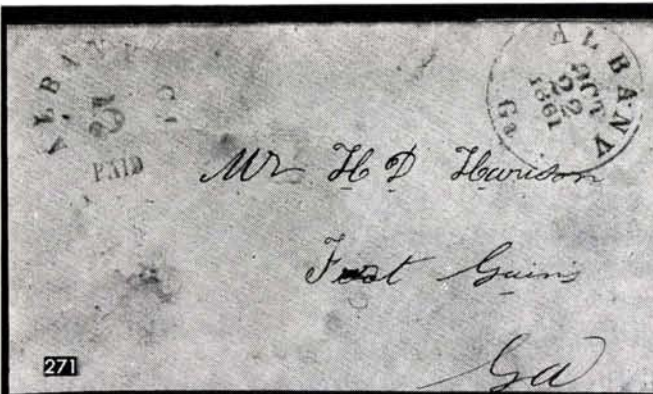 ALBANY Ga
10
PAID
ALBANY Ga
OCT
22
1861
Mr H D Harison
Fort Gains
Ga
271